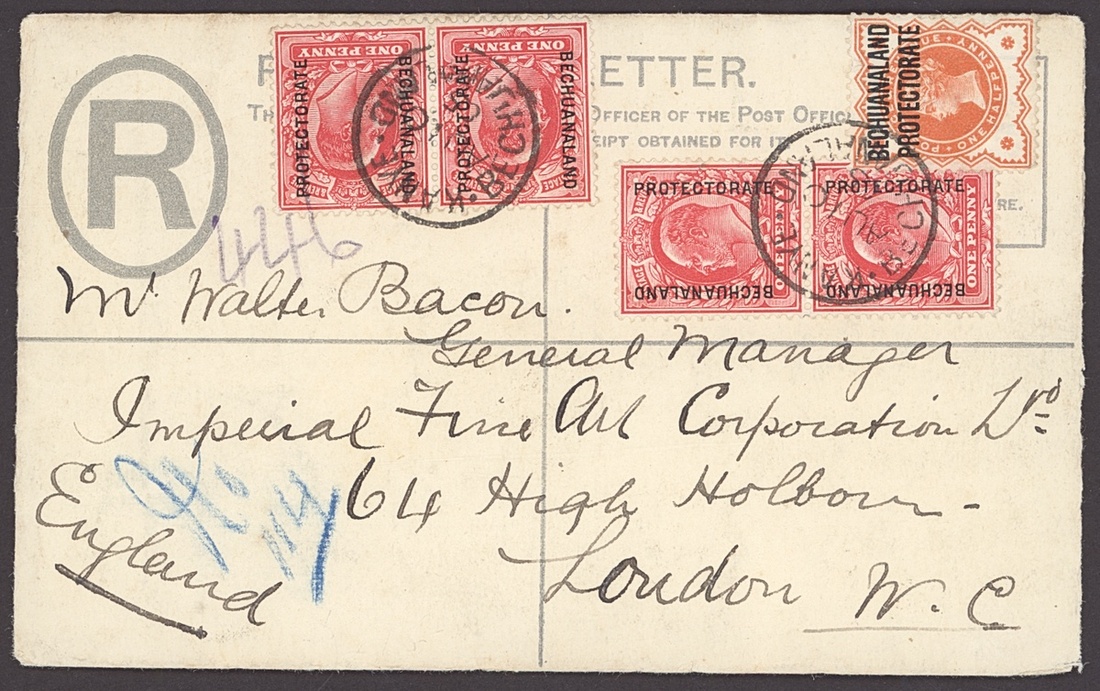 R
LETTER.
OFFICER OF THE POST OFFIC
RECEIPT OBTAINED FOR IT
RE.
ONE PENNY
BECHUANALAND
PROTECTORATE
ONE PENNY
BECHUANALAND
PROTECTORATE
BECHUANALAND
PROTECTORATE
POSTAGE
ONE HALFPENNY
PROTECTORATE
BECHUANALAND
ONE PENNY
PROTECTORATE
BECHUANALAND
ONE PENNY
446
Mr. Walter Bacon.
General Manager
Imperial Fine Art Corporation Ltd
64 High Holborn
London W.C
England